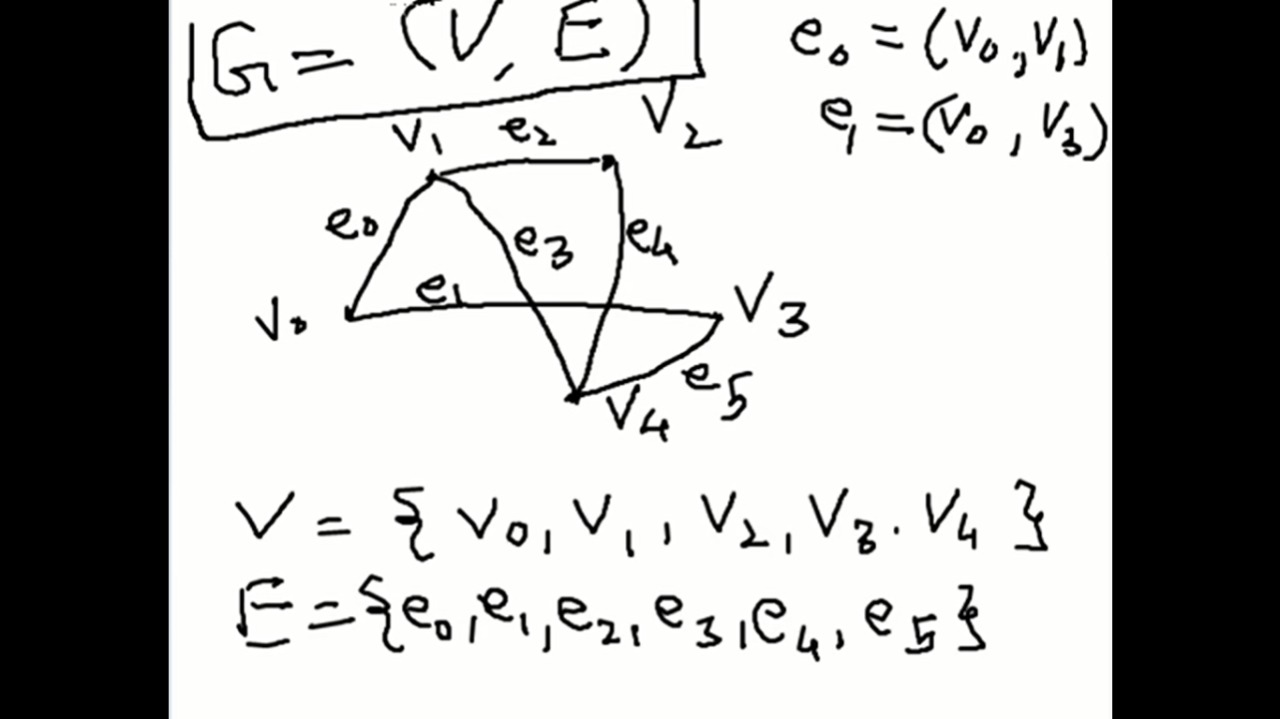 G = (V, E)
e₀ = (v₀, v₁)
e₁ = (v₀, v₃)
v₁ e₂ v₂
e₀ e₃ e₄
v₀ e₁ v₃
v₄ e₅
V = { v₀, v₁, v₂, v₃. v₄ }
E = {e₀, e₁, e₂, e₃, e₄, e₅}